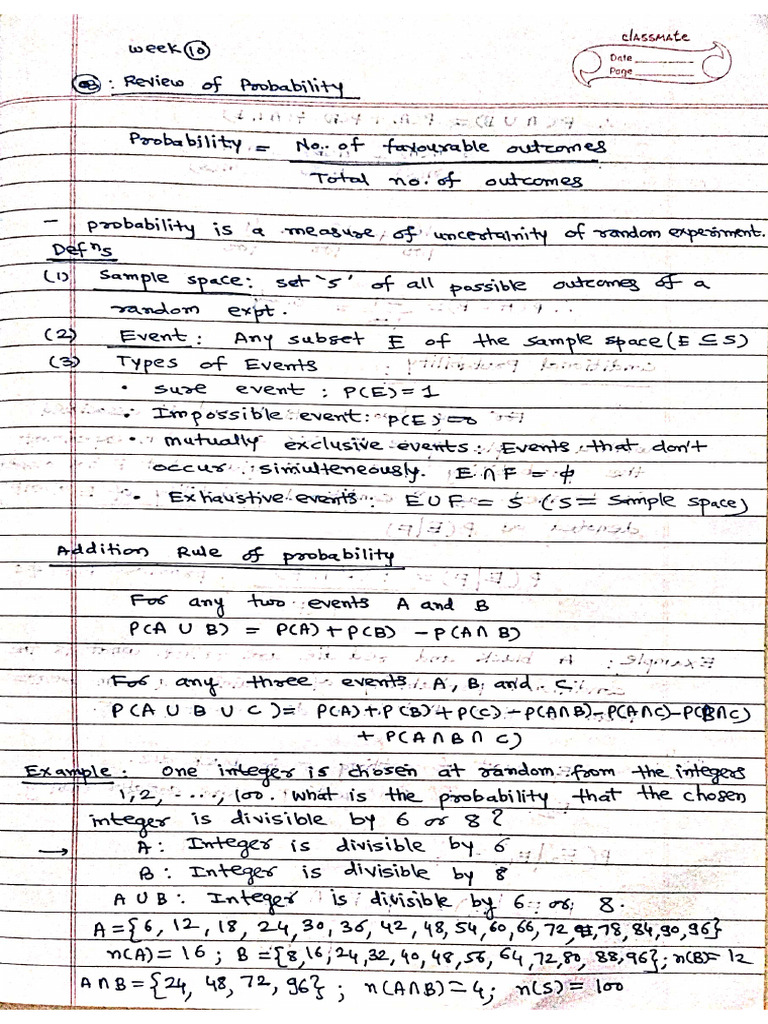 classmate
Date
Page
Week 10
08: Review of Probability
Probability = No. of favourable outcomes
Total no. of outcomes
- probability is a measure of uncertainity of random experiment.
Defⁿs
(1) Sample space: set 's' of all possible outcomes of a
random expt.
(2) Event: Any subset E of the sample space (E ⊆ S)
(3) Types of Events
• sure event : P(E)=1
• Impossible event: P(E)=0
• mutually exclusive events: Events that don't
occur simulteneously. E ∩ F = ϕ
• Exhaustive events: E ∪ F = S (S = sample space)
Addition Rule of probability
For any two events A and B
P(A ∪ B) = P(A) + P(B) - P(A ∩ B)
For any three events A, B and C
P(A ∪ B ∪ C) = P(A) + P(B) + P(C) - P(A∩B) - P(A∩C) - P(B∩C)
+ P(A ∩ B ∩ C)
Example: One integer is chosen at random from the integers
1, 2, ...., 100. What is the probability that the chosen
integer is divisible by 6 or 8?
→ A: Integer is divisible by 6
B: Integer is divisible by 8
A ∪ B: Integer is divisible by 6 or 8.
A = {6, 12, 18, 24, 30, 36, 42, 48, 54, 60, 66, 72, 78, 84, 90, 96}
n(A) = 16 ; B = {8, 16, 24, 32, 40, 48, 56, 64, 72, 80, 88, 96}; n(B) = 12
A ∩ B = {24, 48, 72, 96} ; n(A∩B) = 4; n(S) = 100